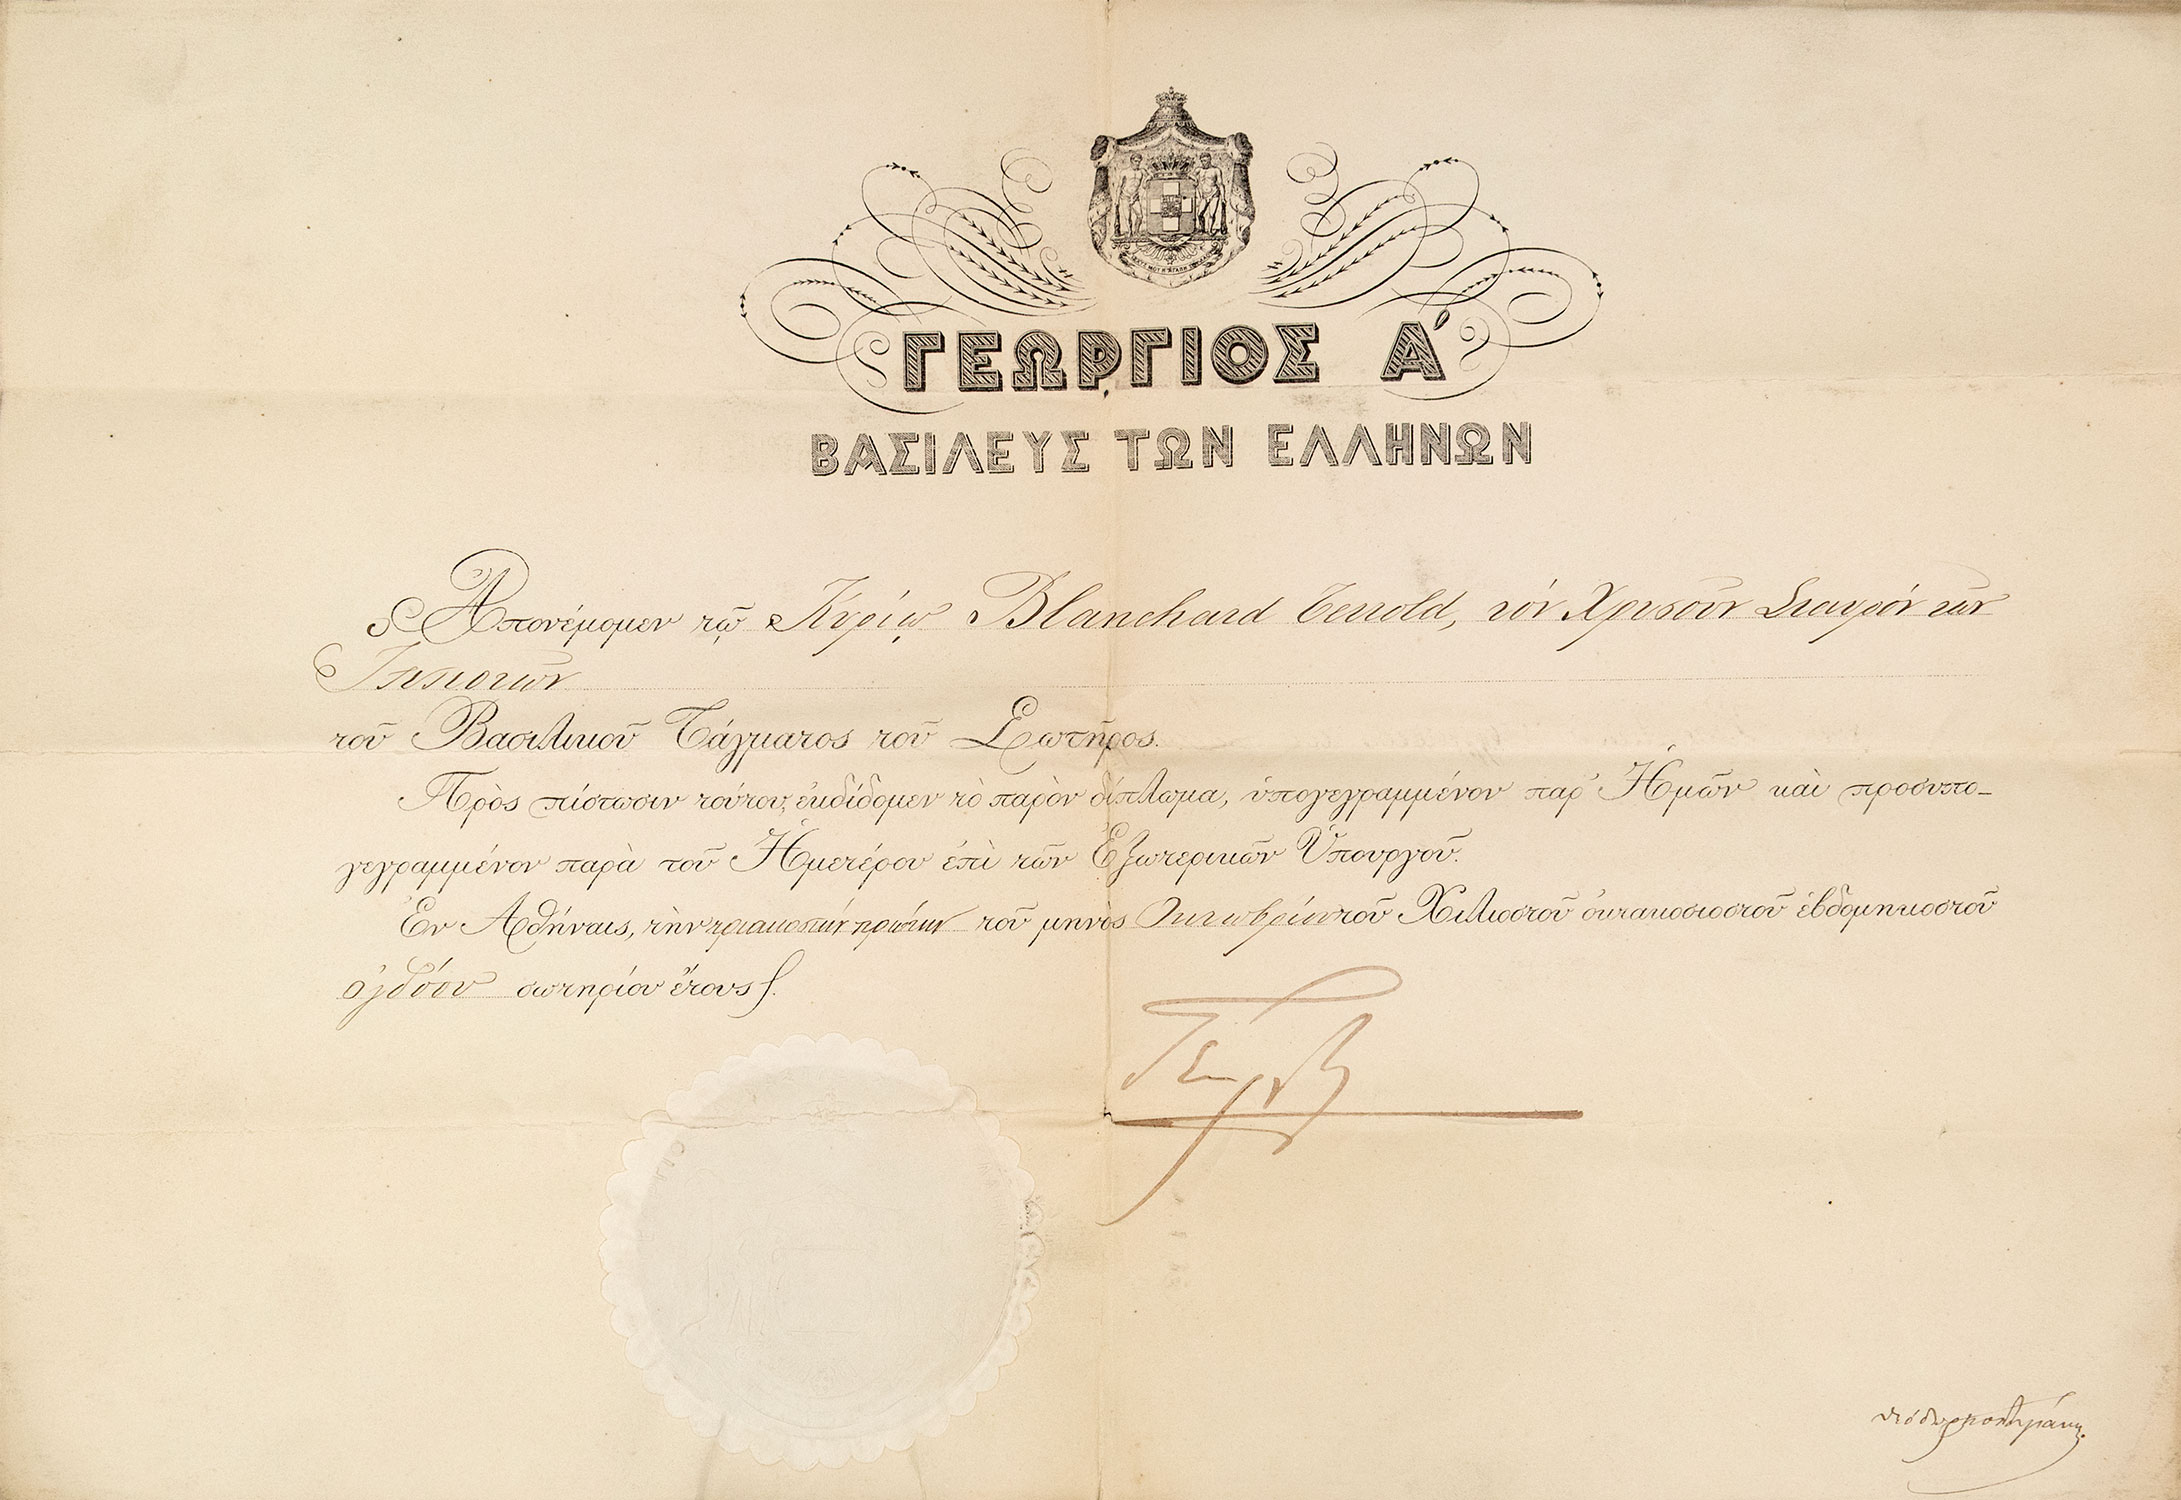 ΓΕΩΡΓΙΟΣ Α΄
ΒΑΣΙΛΕΥΣ ΤΩΝ ΕΛΛΗΝΩΝ
Ἀπονέμομεν τῷ Κυρίῳ Blanchard Jerrold, τὸν Χρυσοῦν Σταυρόν τῶν
Ἱπποτῶν
τοῦ Βασιλικοῦ Τάγματος τοῦ Σωτῆρος.
Πρὸς πίστωσιν τούτου, ἐκδίδομεν τὸ παρὸν δίπλωμα, ὑπογεγραμμένον παρ' Ἡμῶν καὶ προσυπο-
γεγραμμένον παρὰ τοῦ Ἡμετέρου ἐπὶ τῶν Ἐξωτερικῶν Ὑπουργοῦ.
Ἐν Ἀθήναις, τὴν τριακοστήν πρώτην τοῦ μηνὸς Ὀκτωβρίου τοῦ Χιλιοστοῦ ὀκτακοσιοστοῦ ἑβδομηκοστοῦ
ὀγδόου σωτηρίου ἔτους.